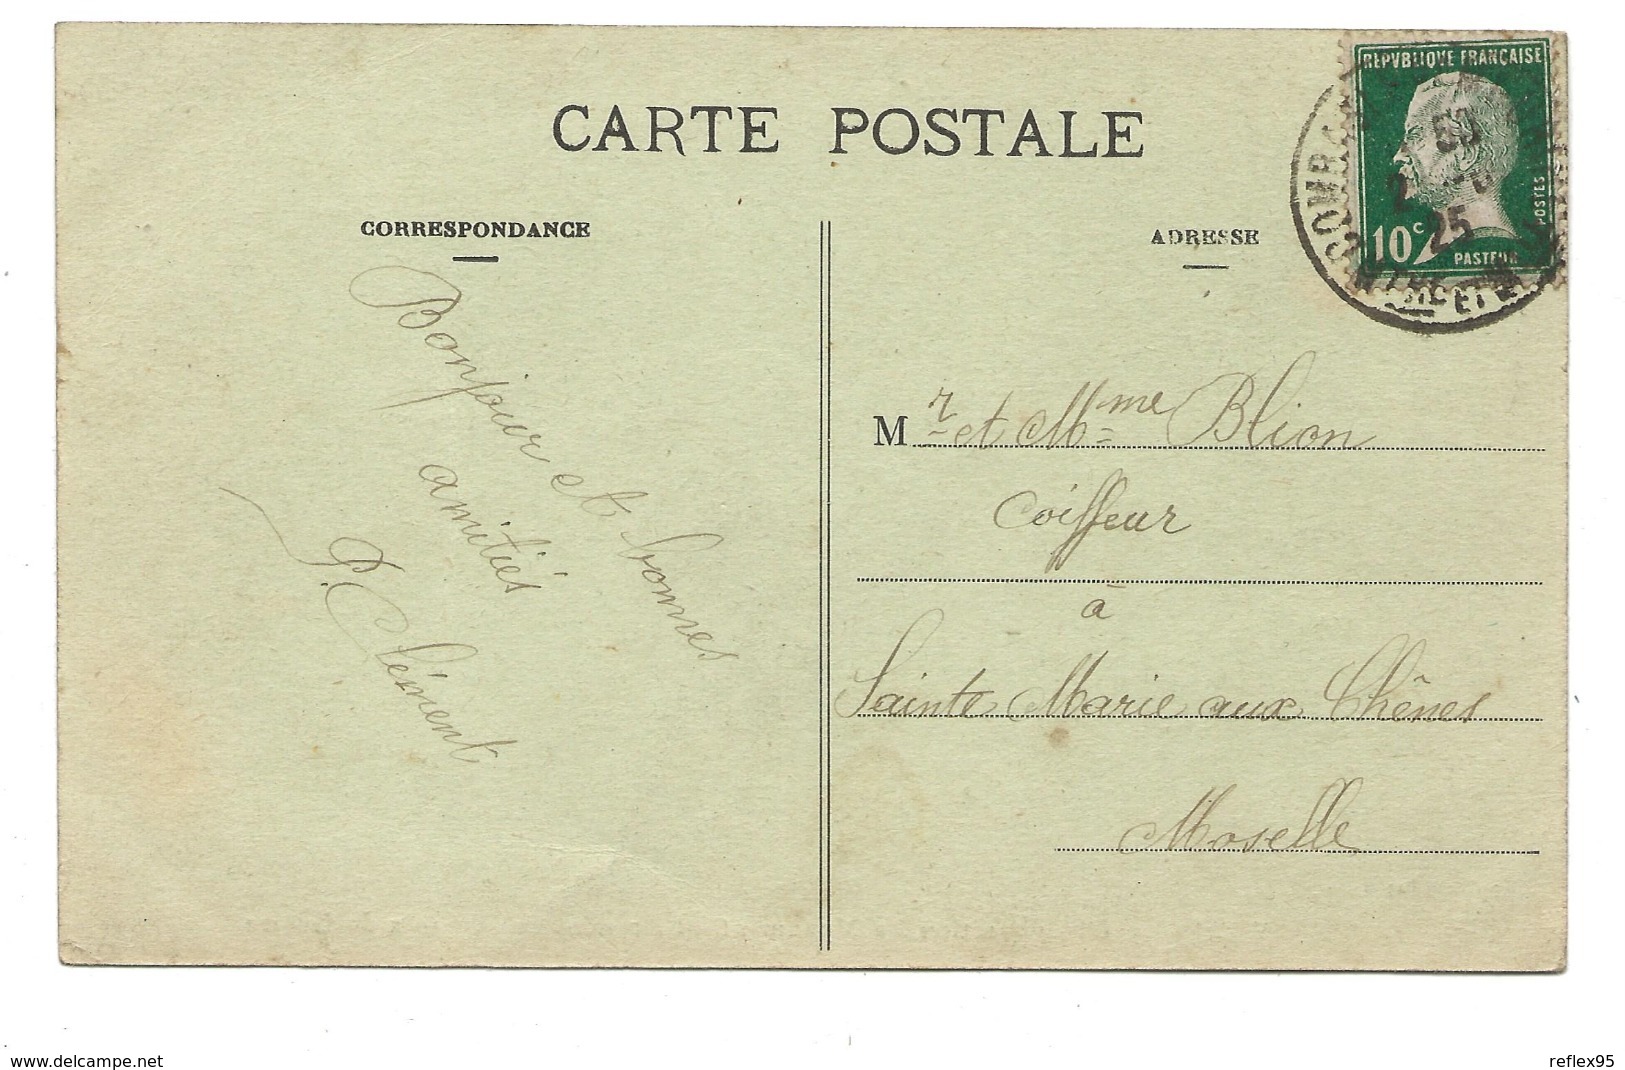 CARTE POSTALE
CORRESPONDANCE
ADRESSE
REPVBLIQVE FRANÇAISE
POSTES
10 c
PASTEUR
25
Bonjour et bonnes
amitiés
P. Clément
Mr et Mme Blion
Coiffeur
à
Sainte Marie aux Chênes
Moselle
www.delcampe.net
reflex95